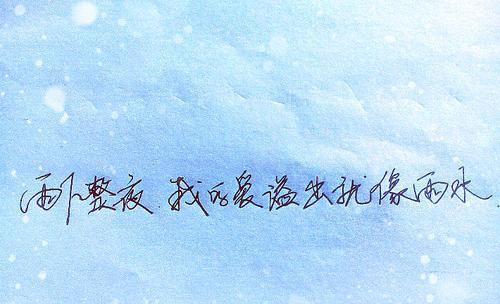 雨下整夜.我的爱溢出就像雨水.